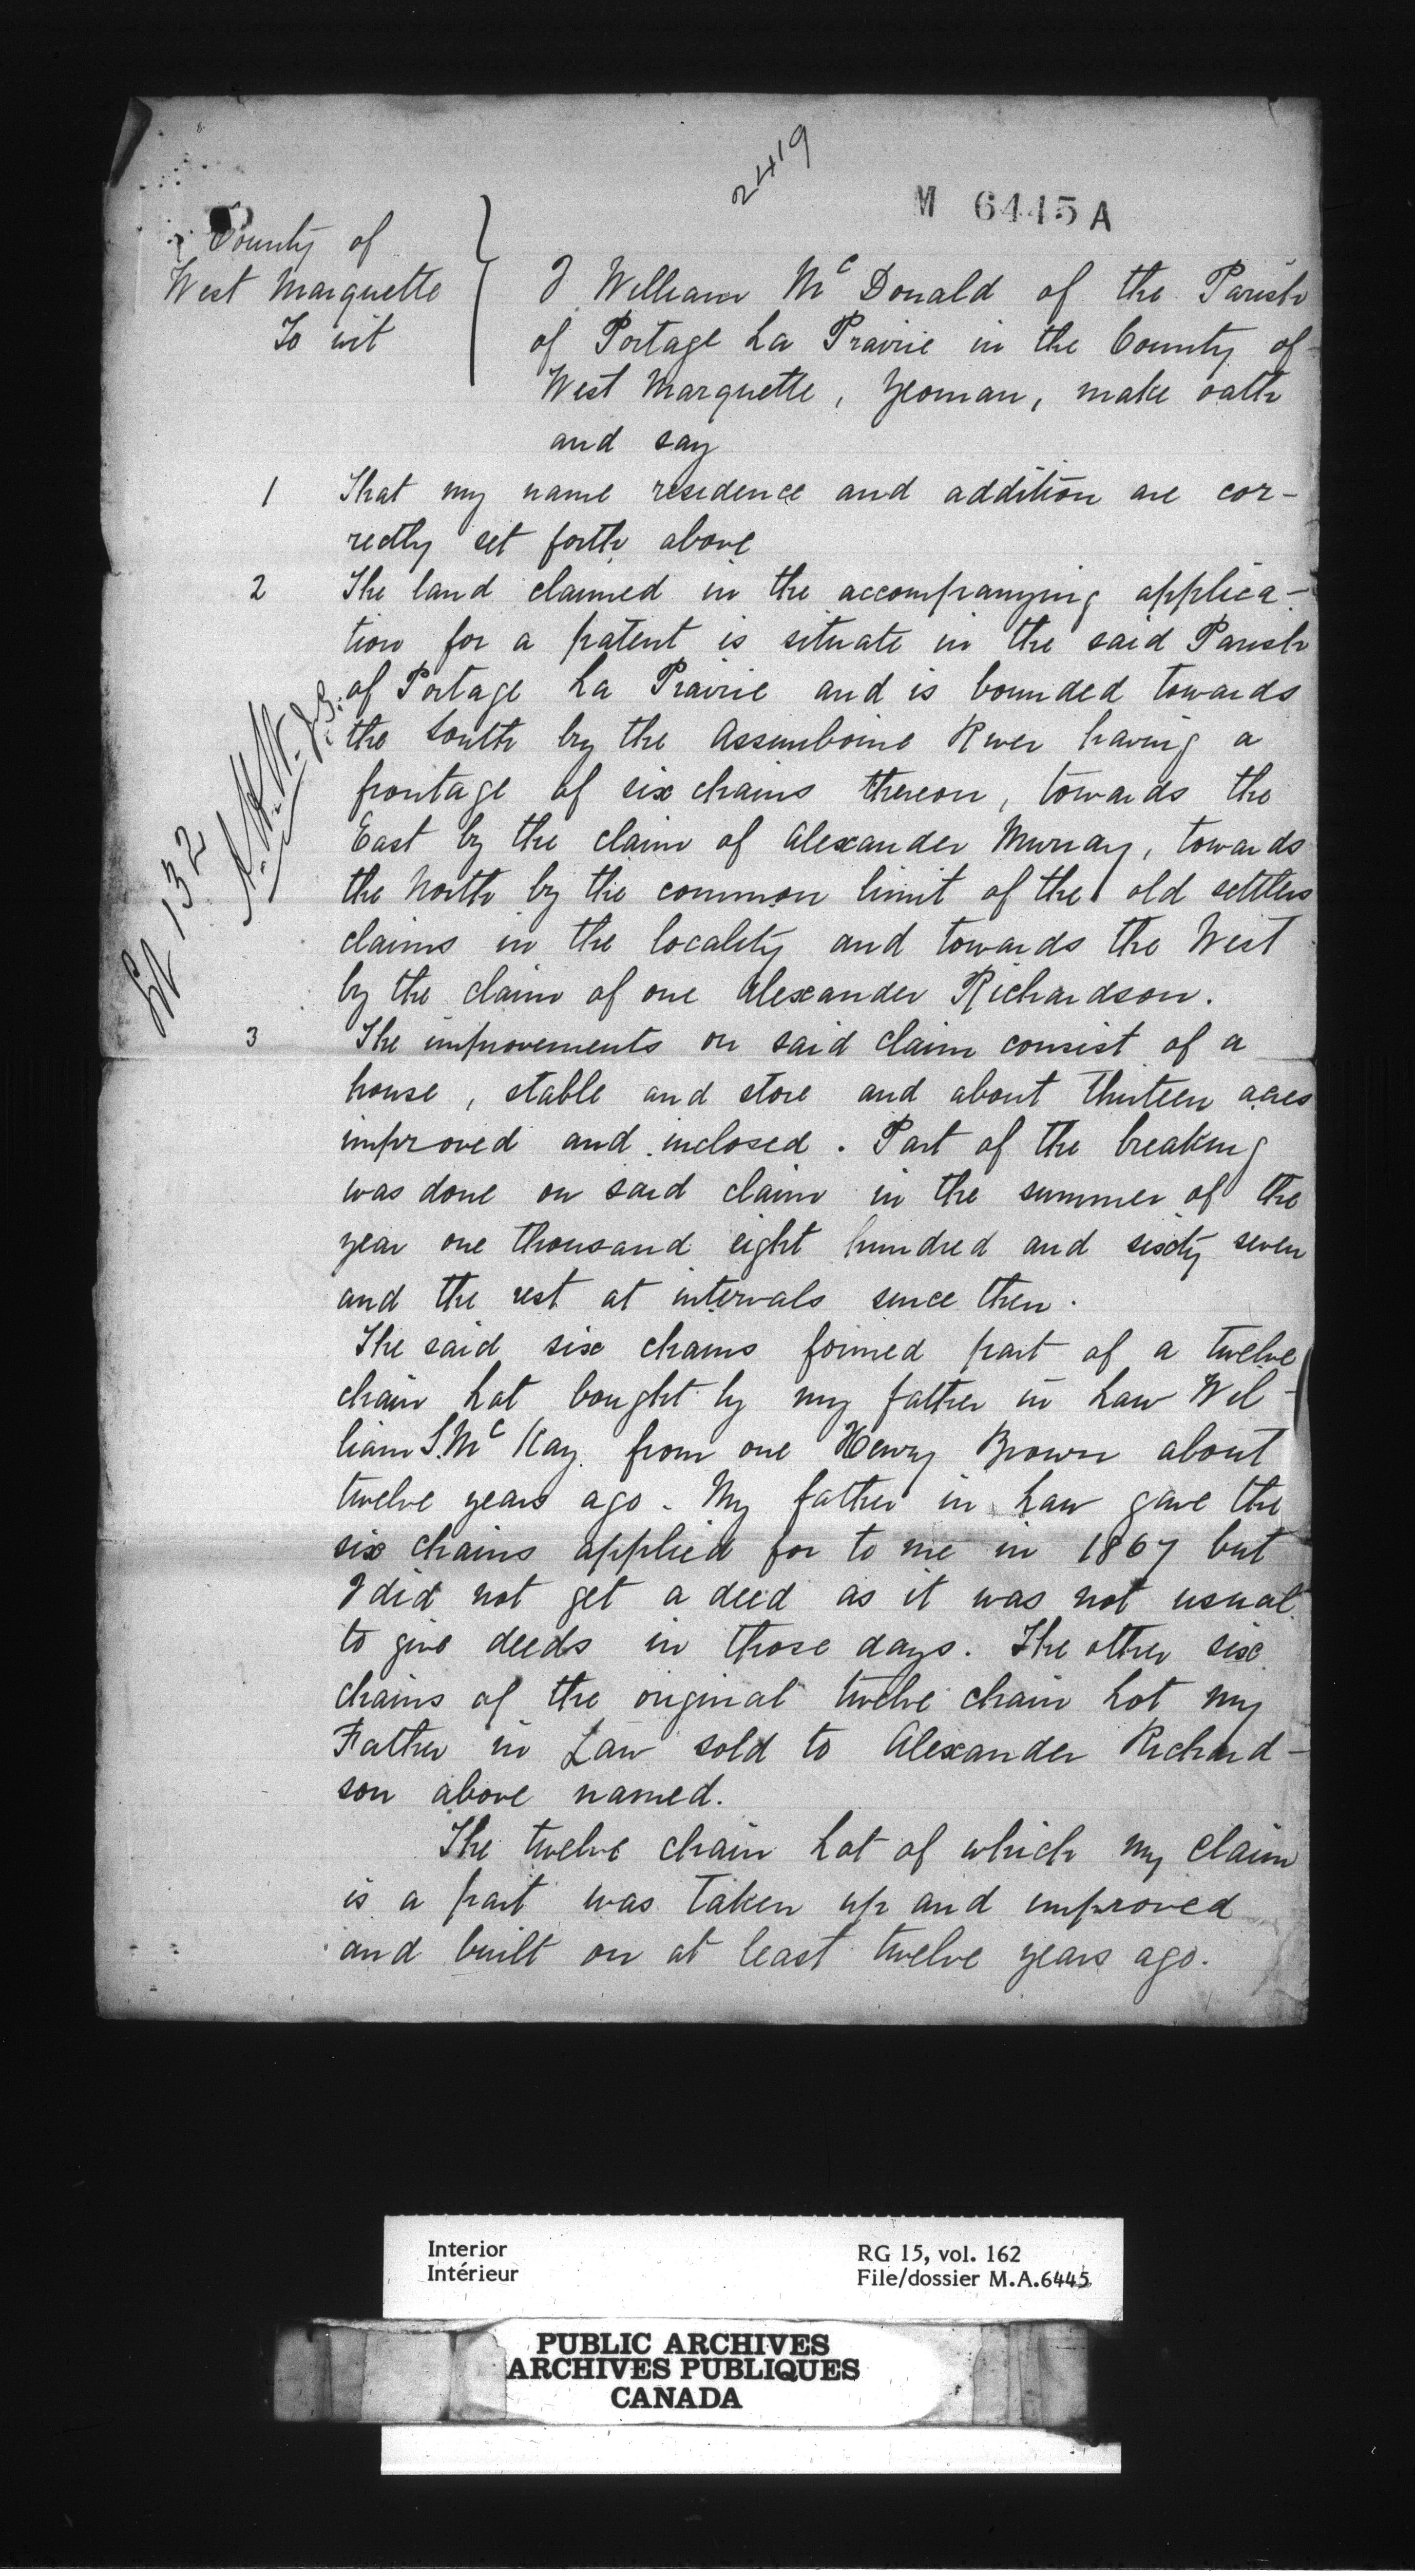 2419
M 6445 A
County of
West Marquette
To wit
I William Mc Donald of the Parish
of Portage La Prairie in the County of
West Marquette, Yeoman, make oath
and say
1 That my name residence and addition are cor-
rectly set forth above
2 The land claimed in the accompanying applica-
tion for a patent is situate in the said Parish
of Portage La Prairie and is bounded towards
the South by the Assiniboine River having a
frontage of six chains thereon, towards the
East by the claim of Alexander Murray, towards
the North by the common limit of the old settlers
claims in the locality and towards the West
by the claim of one Alexander Richardson.
Lot 132
3 The improvements on said claim consist of a
house, stable and store and about thirteen acres
improved and inclosed. Part of the breaking
was done on said claim in the summer of the
year one thousand eight hundred and sixty seven
and the rest at intervals since then.
The said six chains formed part of a twelve
chain Lot bought by my father in Law Wil-
liam S. Mc Kay from one Henry Brown about
twelve years ago. My father in Law gave the
six chains applied for to me in 1867 but
I did not get a deed as it was not usual
to give deeds in those days. The other six
chains of the original twelve chain Lot my
Father in Law sold to Alexander Richard-
son above named.
The twelve chain Lot of which my claim
is a part was taken up and improved
and built on at least twelve years ago.
Interior
Intérieur
RG 15, vol. 162
File/dossier M.A.6445
PUBLIC ARCHIVES
ARCHIVES PUBLIQUES
CANADA